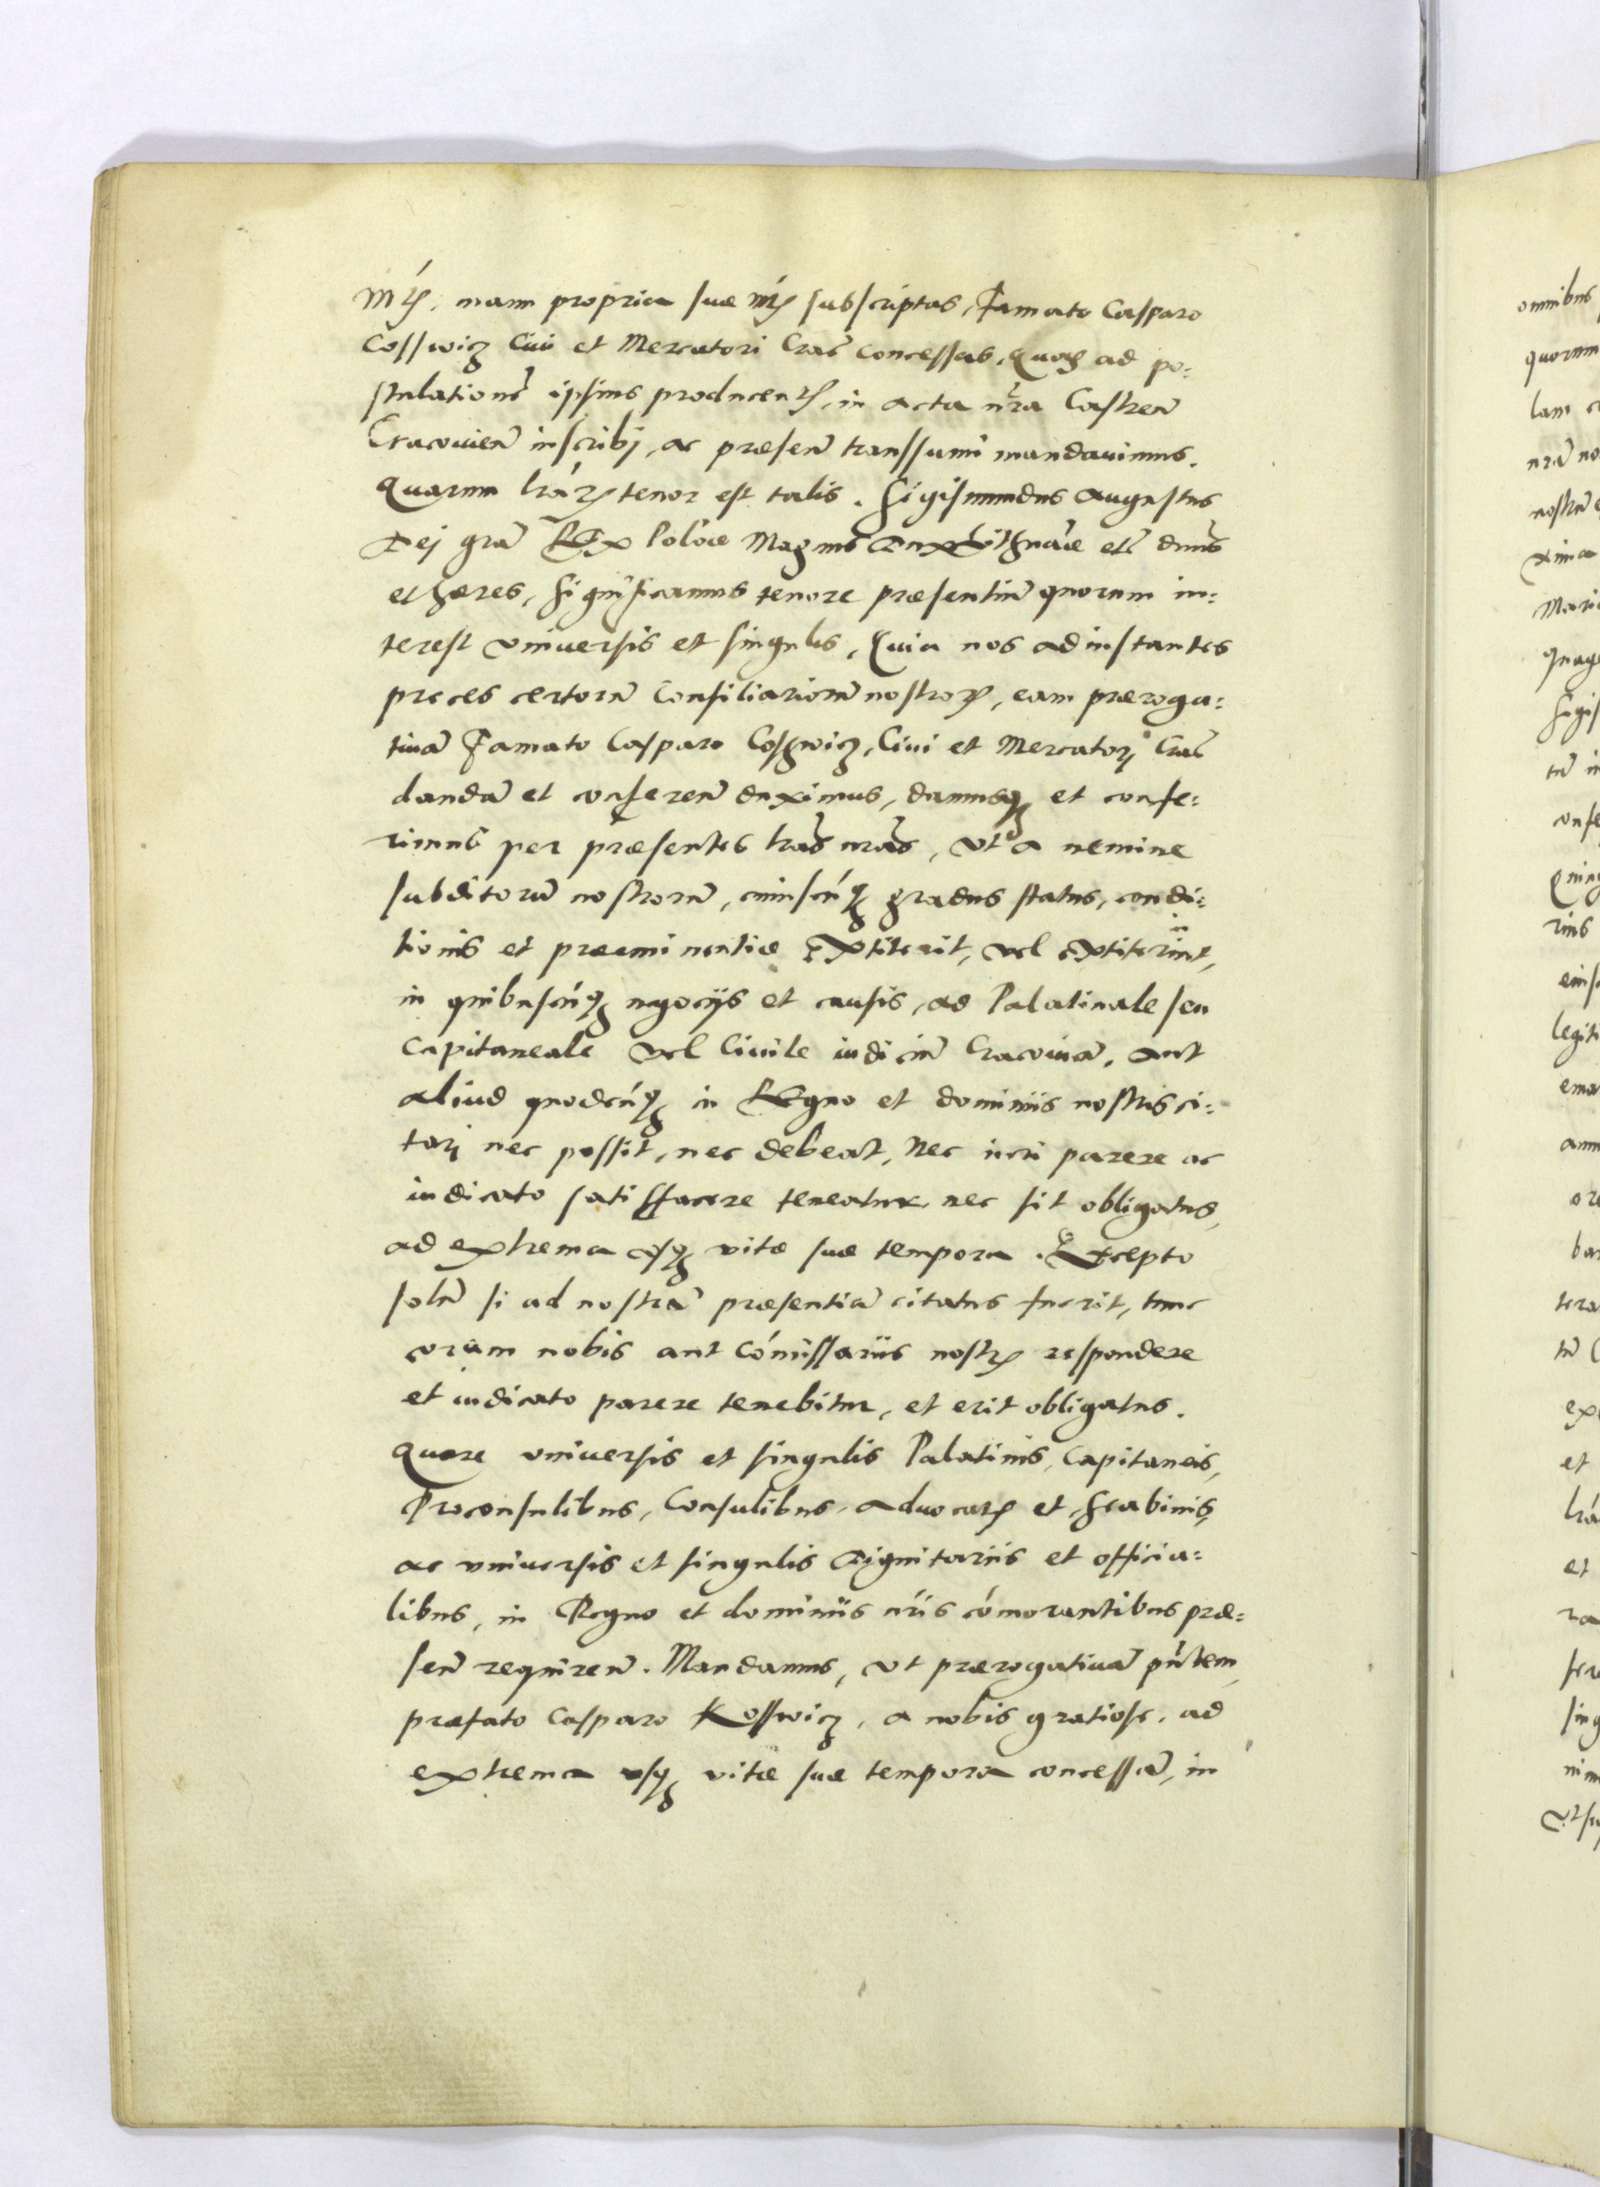 Mtis, manu propria suæ Mtis subscriptas, Famato Casparo
Cosswicz Ciui et Mercatori Crac̃ concessas, Quas ad po:
stulationẽ ipsius producentis, in acta nr̃a Castren̄
Cracouien̄ inscribj, ac præsen̄ transsumi mandauimus.
Quarum lrãrꝫ tenor est talis. Sigismundus Augustus
Dej grã REx Polõiæ Magnus Dux Lithuãiæ etc̃ dnũs
et hæres, Significamus tenore præsentiũ quorum in:
terest vniuersis et singulis, Quia nos ad instantes
preces certorũ Consiliariorũ nostroꝝ, eam præroga:
tiuã Famato Casparo Coswicz, Ciui et Mercatorj Crac̃
dandã et conferen̄ duximus, damusqꝫ et confe:
rimus per præsentes lrãs nrãs, vt a nemine
subditorũ nostrorũ, cuiuscũqꝫ gradus status, condi:
tionis et præeminentiæ Extiterit, vel extiterint,
in quibuscũqꝫ negocijs et causis, ad Palatinale seu
Capitaneale vel Ciuile iudiciũ Cracouiẽ, aut
aliud quodcũqꝫ in REgno et dominiis nostris ci:
tarj nec possit, nec debeat, Nec iuri parere ac
iudicato satisfacere teneatur nec sit obligatus,
ad extrema vsqꝫ vitæ suæ tempora. Excepto
solũ si ad nostrã præsentiã citatus fuerit, tunc
coram nobis aut Cõmissariis nostris respondere
et iudicato parere tenebitur, et erit obligatus.
Quare vniuersis et singulis Palatinis, Capitaneis,
Proconsulibus, Consulibus, Aduocatis et Scabinis,
ac vniuersis et singulis Dignitariis et officia:
libus, in Regno et dominiis nr̃is cõmorantibus præ:
sen̄ requiren̄. Mandamus, vt prærogatiuã pñtem,
præfato Casparo Kosswicz, a nobis gratiose, ad
extrema vsqꝫ vitæ suæ tempora concessã, in